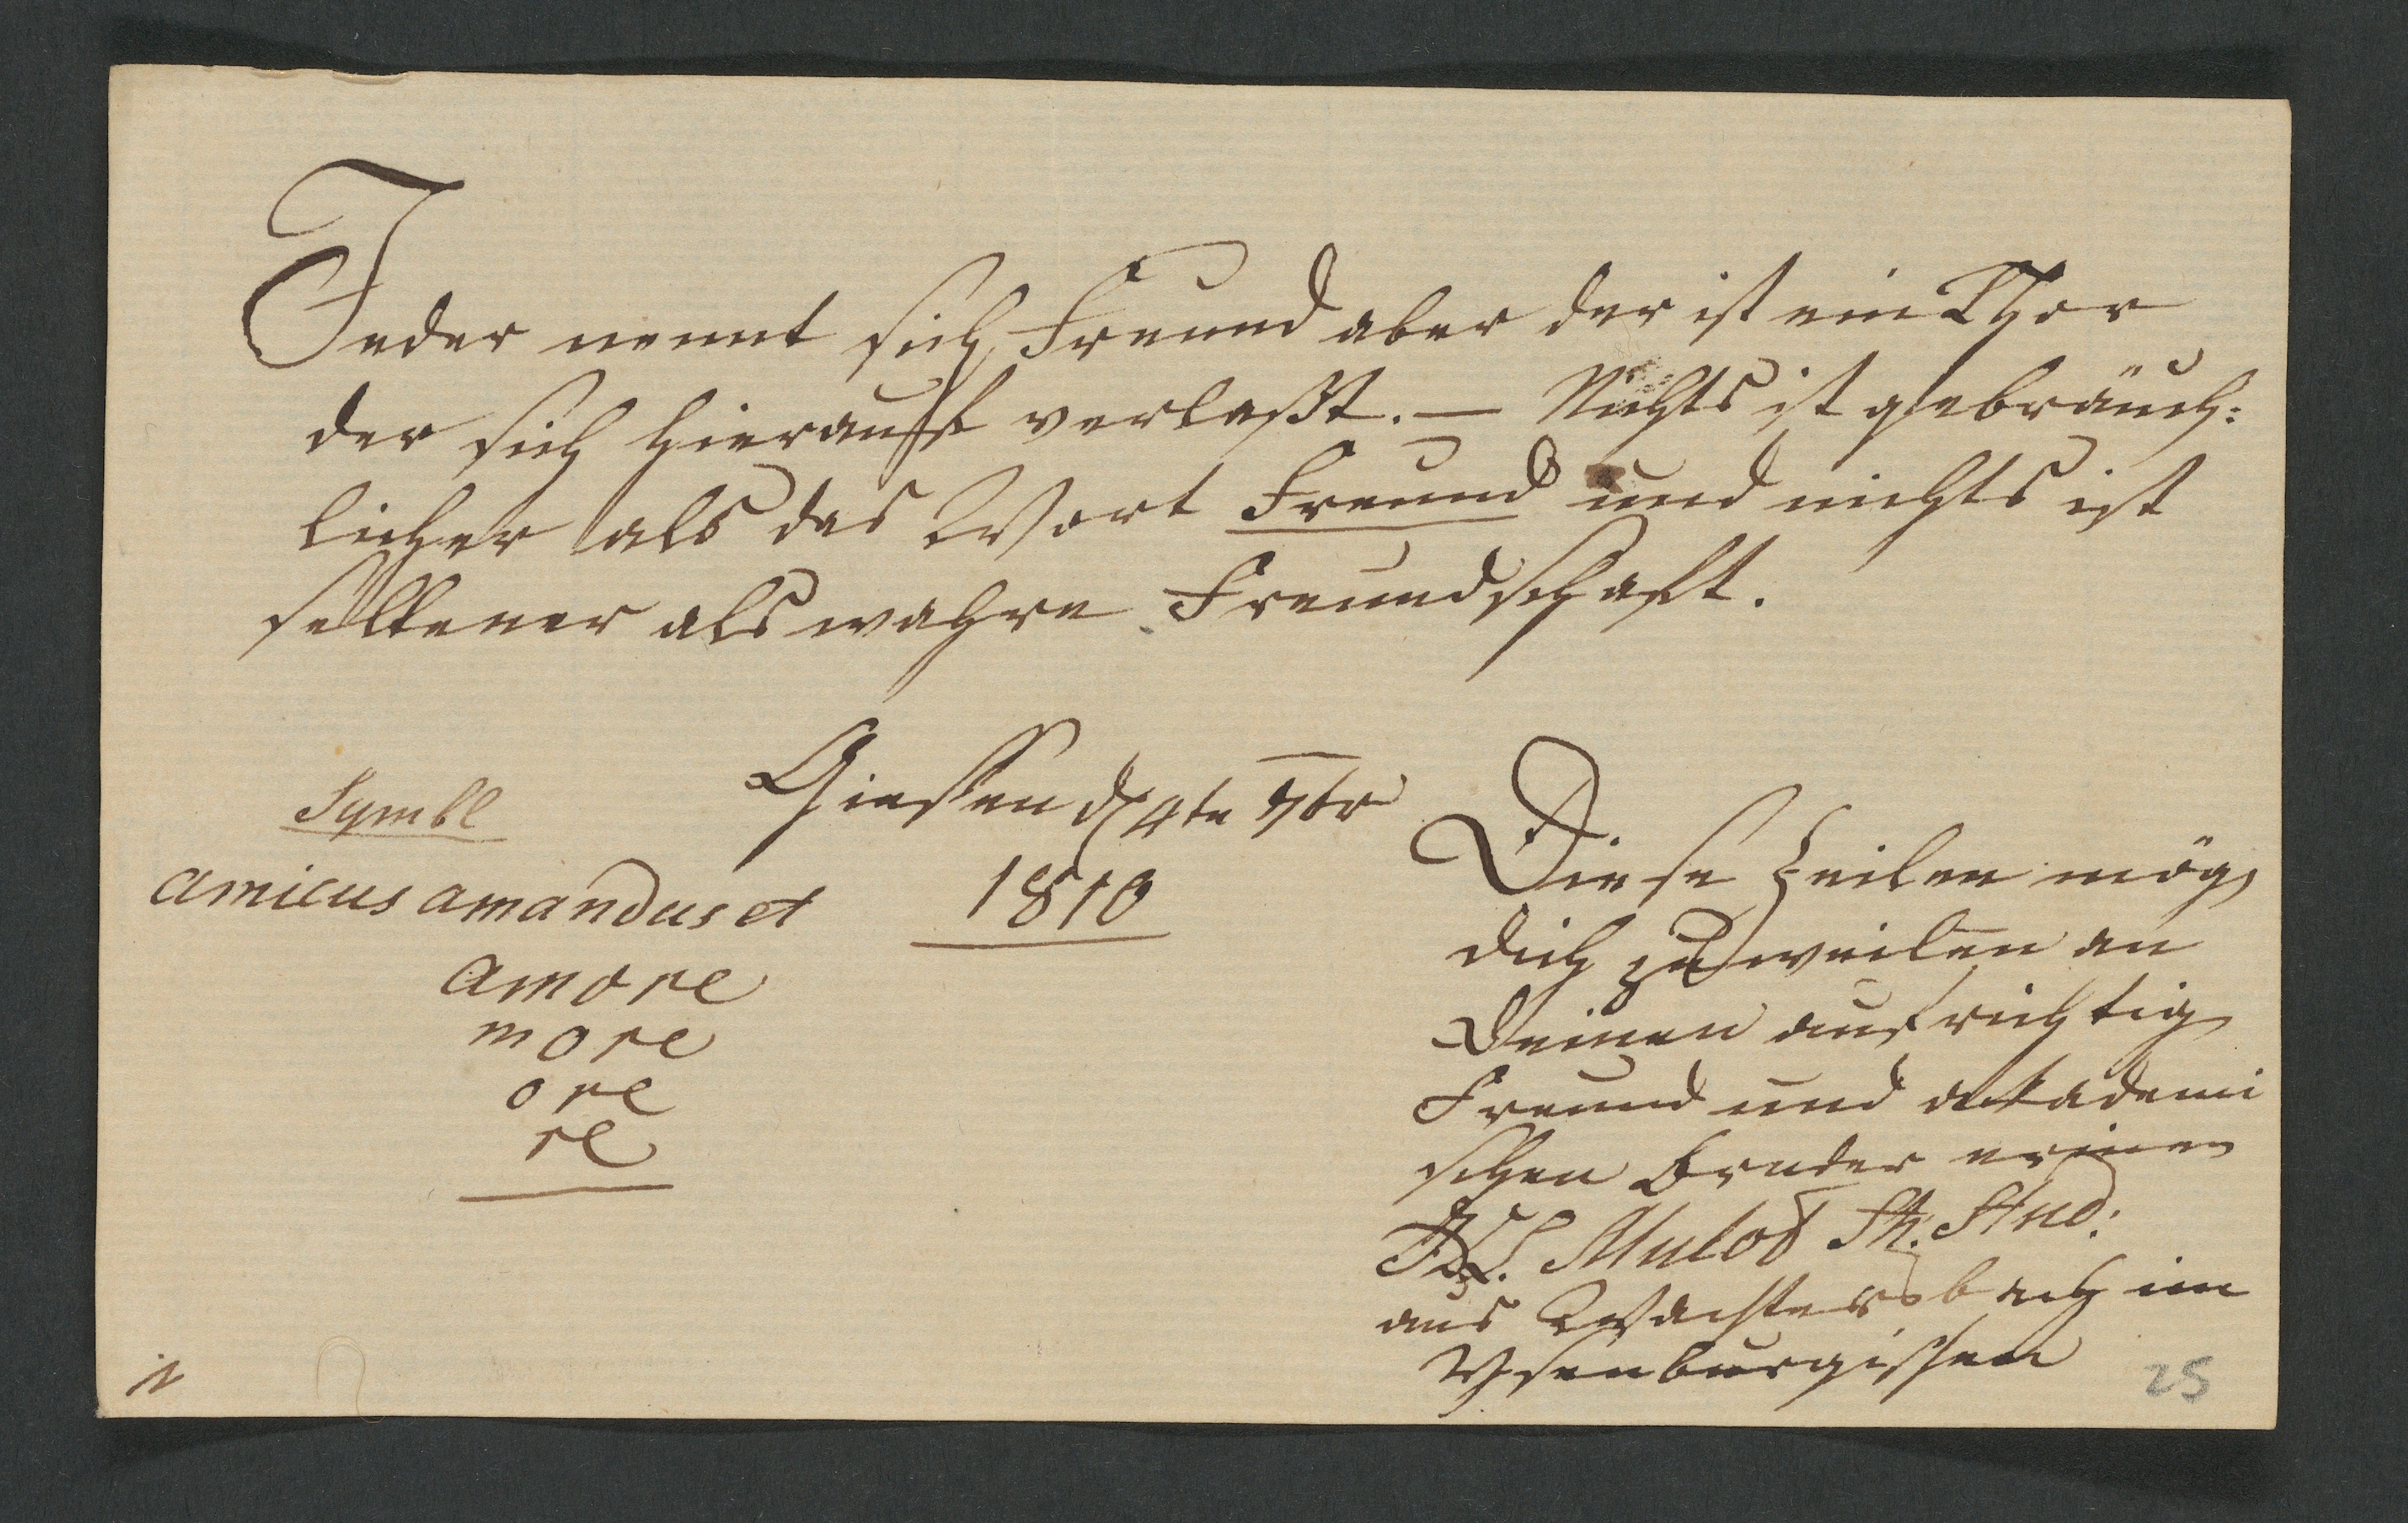 Jeder nennt sich Freund aber der ist ein Thor
der sich hierauf verlaßt. — Nichts ist gebräuch:
licher als das Wort Freund und nichts ist
seltener als wahre Freundschaft.
Symbl
amicus amandus et
amore
more
ore
re
Giessen d 4te 7br
1810
Diese Zeilen mög
dich zuweilen an
Deinen aufrichtig
Freund und akademi
schen Bruder erinern
L. Mulot Th. Stud:
aus Wächtersbach im
Ysenburgischen
25